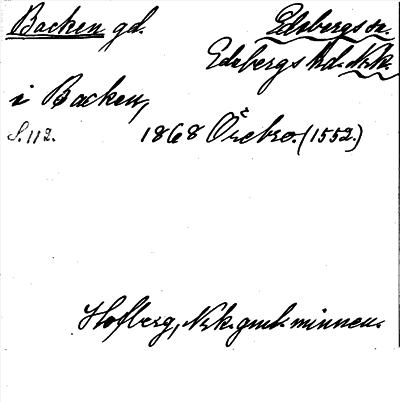 Backen gd. Edsbergs sn.
Edsbergs hd. Nrk.
i Backen,
S. 112. 1868 Örebro. (1552.)
Hofberg, Nrk. gmk minnen.